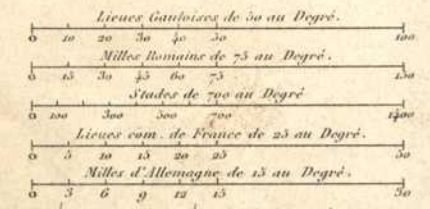 Lieues Gauloises de 50 au Degré.
0 10 20 30 40 50 100
Milles Romains de 75 au Degré.
0 15 30 45 60 75 150
Stades de 700 au Degré
0 100 300 500 700 1400
Lieues com. de France de 25 au Degré.
0 5 10 15 20 25 50
Milles d'Allemagne de 15 au Degré.
0 3 6 9 12 15 30